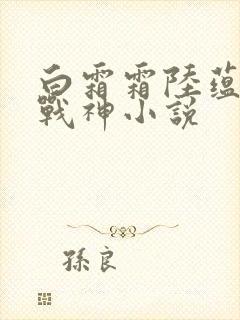 白霜霜陸蘊
戰神小說
孫良